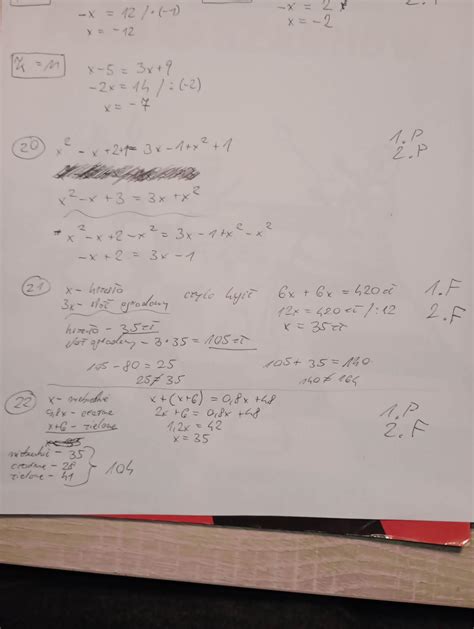 -x = 12 /·(-1)
x = -12
-x = 2
x = -2
x-5 = 3x+9
-2x = 14 /:(-2)
x = -7
20
x² - x + 2+1 = 3x - 1 + x² + 1
1.P
2.P
x² - x + 3 = 3x + x²
x² - x + 2 - x² = 3x - 1 + x² - x²
-x + 2 = 3x - 1
21
x - krzesło
3x - stół ogrodowy
6x + 6x = 420 zł
12x = 420 zł /:12
x = 35 zł
1.F
2.F
krzesło - 35 zł
stół ogrodowy - 3·35 = 105 zł
105 - 80 = 25
25 ≠ 35
105 + 35 = 140
140 ≠ 164
22
x - niebieskie
0,8x - czerwone
x+6 - zielone
x + (x+6) = 0,8x + 48
2x + 6 = 0,8x + 48
1,2x = 42
x = 35
1.P
2.F
niebieskie - 35
czerwone - 28
zielone - 41
104